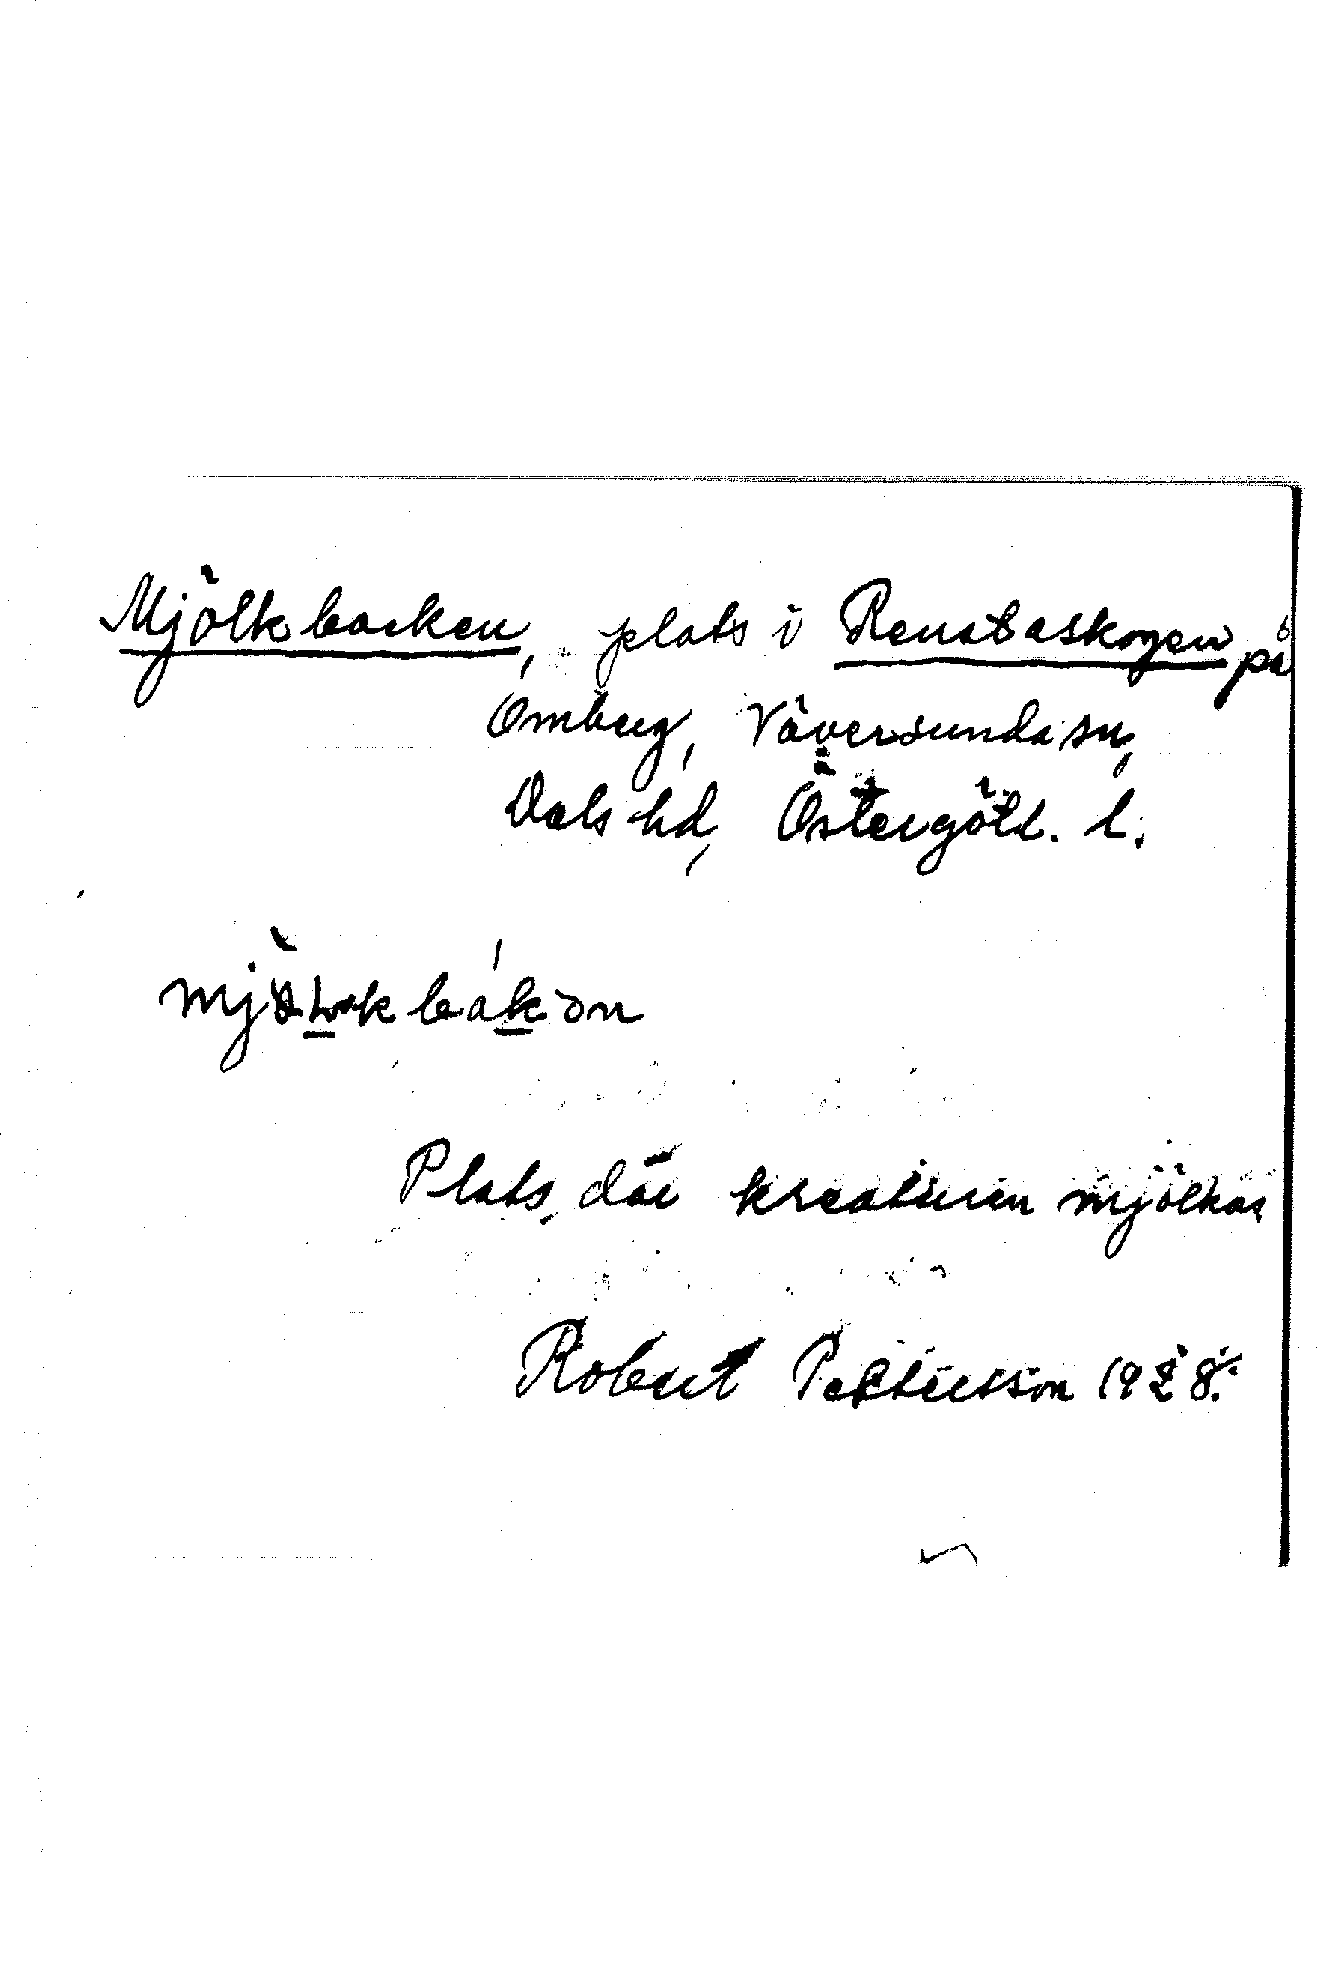 Mjölkbacken, plats i Renstaskogen på
Omberg, Väversunda sn,
Dals hd, Östergötl. l.
Plats, där kreaturen mjölkas
Robert Pettersson 1928.